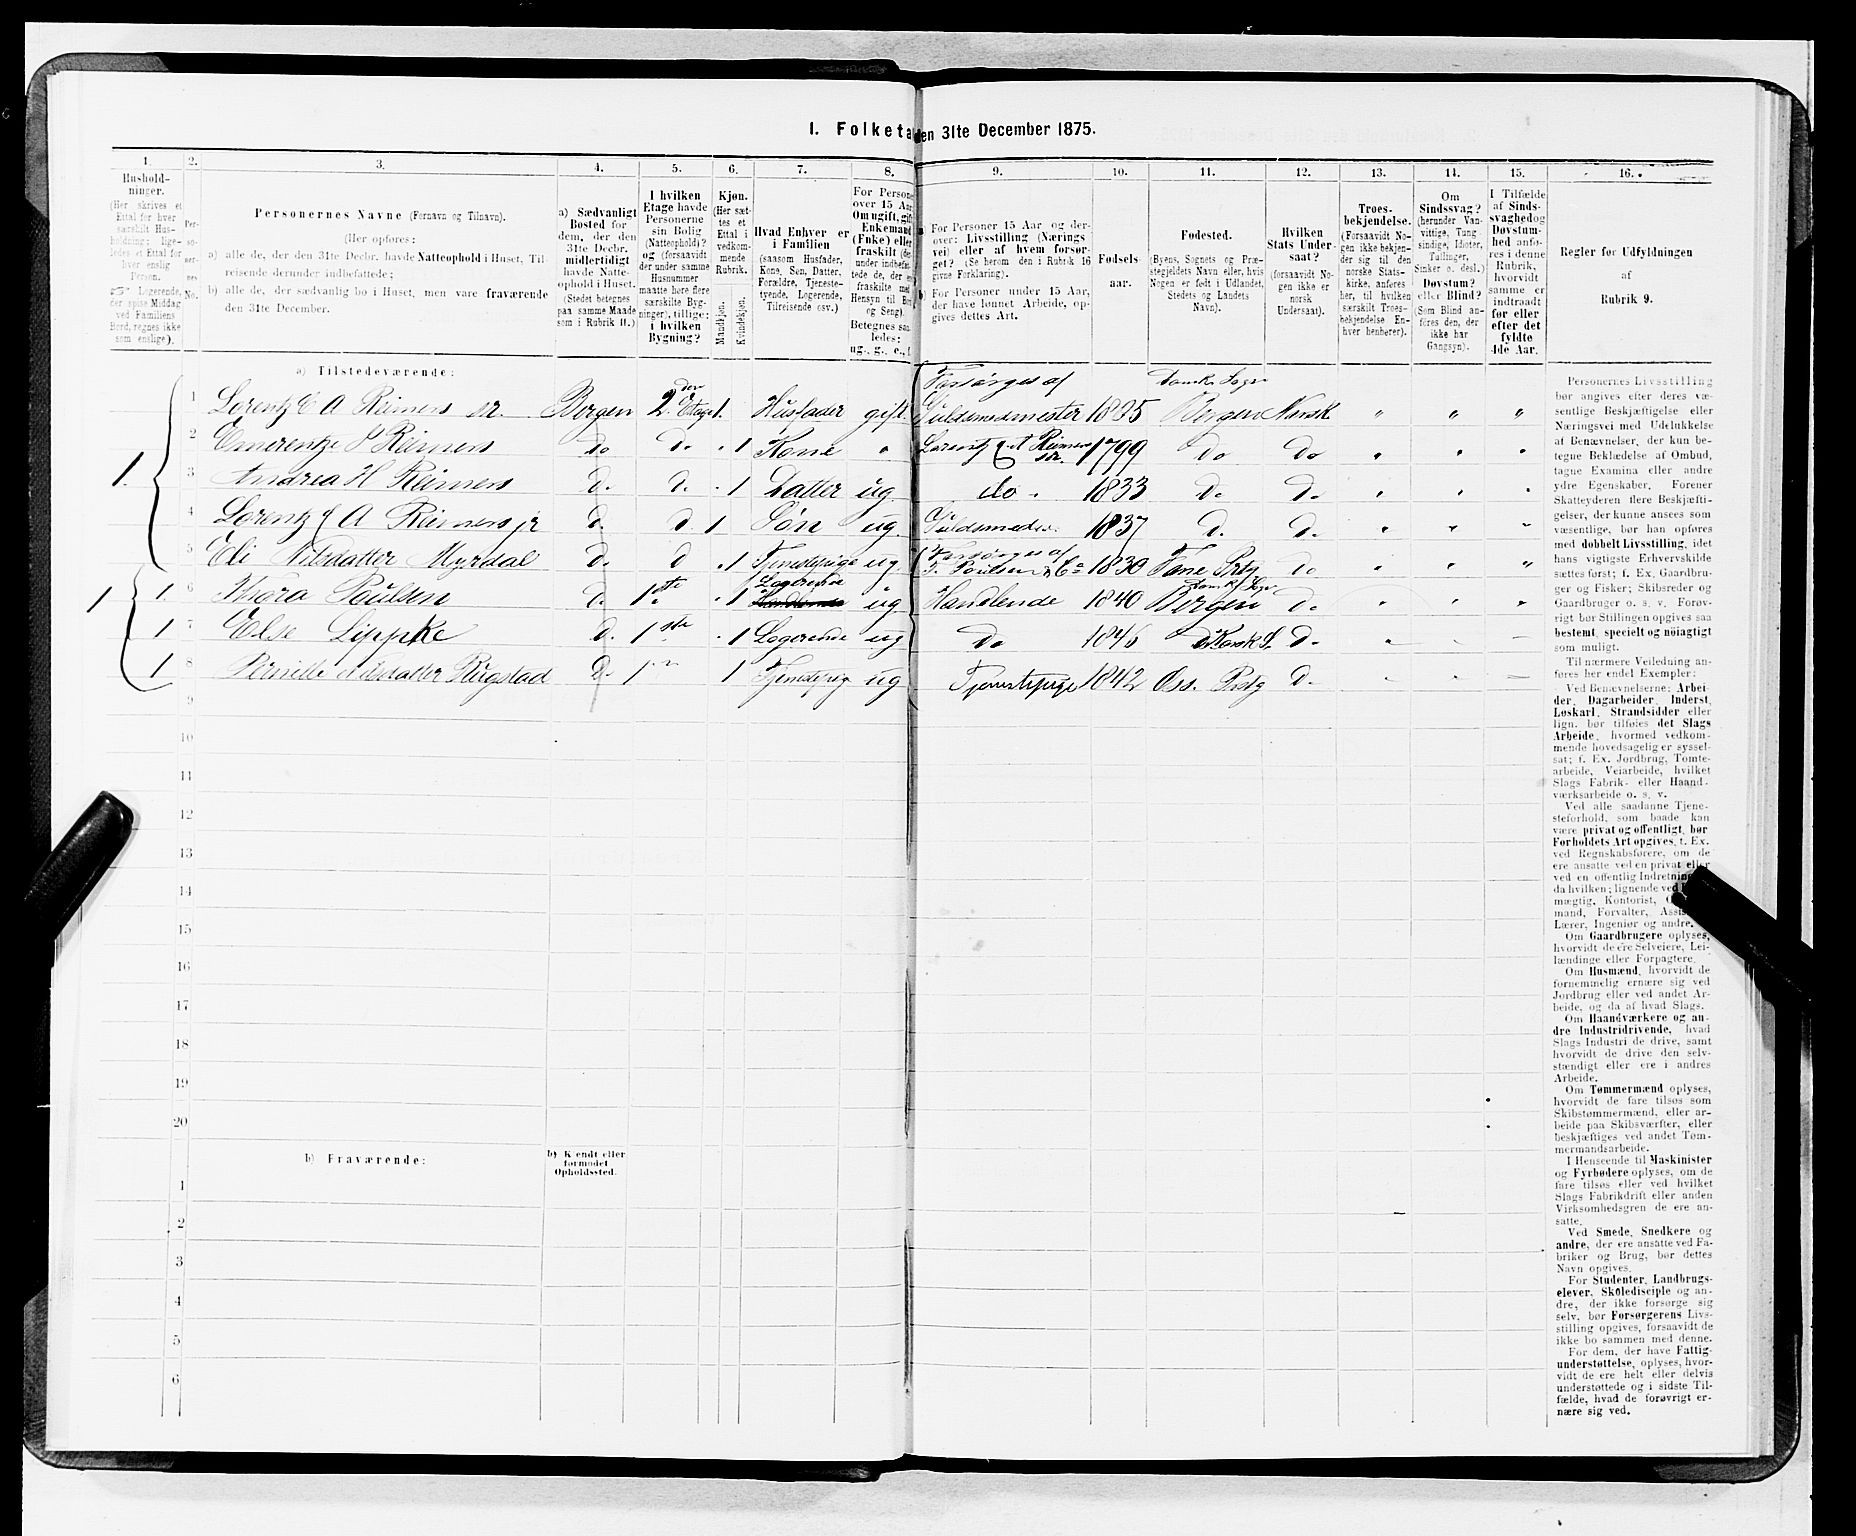 1. Folketa
den 31te December 1875.
1.
2.
3.
4.
5.
6.
7.
8.
9.
10.
11.
12.
13.
14.
15.
16.
Hushold-
ninger.
(Her skrives et
Ettal for hver
særskilt Hus-
holdning; lige-
ledes et Ettal for
hver enslig
Person.
Logerende,
der spise Middag
ved Familiens
Bord, regnes ikke
som enslige).
Per-
so-
ner-
nes
No.
Personernes Navne (Fornavn og Tilnavn).
(Her opføres:
a) alle de, der den 31te Decbr. havde Natteophold i Huset, Til-
reisende derunder indbefattede;
b) alle de, der sædvanlig bo i Huset, men vare fraværende
den 31te December.
a) Sædvanligt
Bosted for
dem, der den
31te Decbr.
midlertidigt
havde Natte-
ophold i Huset.
(Stedet betegnes
paa samme Maade
som i Rubrik 11.)
I hvilken
Etage havde
Personerne
sin Bolig
(Natteophold)?
og (forsaavidt
der under samme
Husnummer
maatte høre flere
særskilte Byg-
ninger), tillige:
i hvilken
Bygning?
Kjøn.
(Her sæt-
tes et
Ettal i
vedkom-
mende
Rubrik.
Mandkjøn.
Kvindekjøn.
Hvad Enhver er
i Familien
(saasom Husfader,
Kone, Søn, Datter,
Forældre, Tjeneste-
tyende, Logerende,
Tilreisende osv.)
For Person
over 15 Aar
Om ugift, gift
Enkemand
(Enke) eller
fraskilt (der-
under indbefat-
tede de, der e
fraskilte med
Hensyn til Bor
og Seng).
Betegnes saa
ledes:
ug., g., e., f.
For Personer 15 Aar og der-
over: Livsstilling (Nærings
vei) eller af hvem forsør-
get? (Se herom den i Rubrik 16
givne Forklaring).
b) For Personer under 15 Aar,
der have lønnet Arbeide, op-
gives dettes Art.
Fødsels-
aar.
Fødested.
(Byens, Sognets og Præ-
stegjeldets Navn eller, hvis
Nogen er født i Udlandet,
Stedets og Landets
Navn).
Hvilken
Stats Under-
saat?
(forsaavidt No-
gen ikke er
norsk
Undersaat).
Troes-
bekjendelse.
(Forsaavidt No-
gen ikke bekjen-
der sig til den
norske Stats-
kirke, anføres
her, til hvilken
særskilt Troes-
bekjendelse En-
hver henhører).
Om
Sindssvag?
(herunder Van-
vittige, Tung-
sindige, Idioter,
Tullinger,
Sinker o. desl.)
Døvstum?
eller Blind?
(Som Blind an-
føres den, der
ikke har
Gangsyn).
I Tilfælde
af Sinds-
svaghed og
Døvstum-
hed anfø-
res i denne
Rubrik,
hvorvidt
samme er
indtraadt
før eller
efter det
fyldte
4de Aar.
Regler for Udfyldningen
af
Rubrik 9.
a) Tilstedeværende:
1 Lorentz C A Reimers sr. Bergen 2den Etage 1. Husfader gift Guldsmedmester 1835 Danske Sogn Bergen Norsk " " "
2 Emerentze J Reimers do do. . 1 Kone " Forsørges af Lorentz C A Reimers sr. 1799 do do " " "
1. 3 Andrea H Reimers d. d. . 1 Datter ug do. 1833 d. d. " " "
4 Lorentz C A Reimers jr d. d. 1 Søn ug. Guldsmedsv. 1837 d. d. " " "
5 Eli Nilsdatter Myrdal d. d . 1 Tjenestepige ug. Forsørges af T. Poulsen & Co 1830 Fane Prstg do " " "
1 1. 6 Thora Poulsen d. 1ste . 1 Logerende ug Handlende 1840 Domk Sogn Bergen d. " " "
1 7 Else Lippke d. 1ste . 1 Logerende ug do 1846 d Korsk S. d. " " "
1 8 Pernille Nilsdatter Rugstad d. 1" 1 Tjenstepig ug Tjenestepige 1842 Oss. Prstg d. " " "
9
10
11
12
13
14
15
16
17
18
19
20
b) Fraværende:
b) Kjendt eller
formodet
Opholdssted.
1
2
3
4
5
6
Personernes Livsstilling
bør angives efter deres væ-
sentlige Beskjæftigelse eller
Næringsvei med Udelukkelse
af Benævnelser, der kun be-
tegne Beklædelse af Ombud,
tagne Examina eller andre
ydre Egenskaber. Forener
Skatteyderen flere Beskjæfti-
gelser, der kunne ansees som
væsentlige, bør han opføres
med dobbelt Livsstilling, idet
hans vigtigste Erhvervskilde
sættes først; f. Ex. Gaardbru-
ger og Fisker; Skibsreder og
Gaardbruger o. s. v. Forøv-
rigt bør Stillingen opgives saa
bestemt, specielt og nøiagtigt
som muligt.
Til nærmere Veiledning an-
føres her endel Exempler:
Ved Benævnelserne: Arbei-
der, Dagarbeider, Inderst,
Løskarl, Strandsidder eller
lign. bør tilføies det Slags
Arbeide, hvormed vedkom-
mende hovedsagelig er syssel-
sat; f. Ex. Jordbrug, Tømte-
arbeide, Veiarbeide, hvilket
Slags Fabrik- eller Haand-
værksarbeide o. s. v.
Ved alle saadanne Tjene-
steforhold, som baade kan
være privat og offentligt, bør
Forholdets Art opgives, t. Ex.
ved Regnskabsførere, om de
ere ansatte ved en privat eller
ved en offentlig Indretning
da hvilken; lignende ved
mægtig, Kontorist,
mand, Forvalter, Assis
Lærer, Ingeniør og andre.
Om Gaardbrugere oplyses,
hvorvidt de ere Selveiere, Lei-
lændinge eller Forpagtere.
Om Husmænd, hvorvidt de
fornemmelig ernære sig ved
Jordbrug eller ved andet Ar-
beide, og da af hvad Slags.
Om Haandværkere og an-
dre Industridrivende, hvad
Slags Industri de drive, samt
hvorvidt de drive den selv-
stændigt eller ere i andres
Arbeide.
Om Tømmermænd oplyses,
hvorvidt de fare tilsøs som
Skibstømmermænd, eller ar-
beide paa Skibsværfter, eller
beskjæftiges ved andet Tøm-
mermandsarbeide.
I Henseende til Maskinister
og Fyrbødere oplyses, om de
fare tilsøs eller ved hvilket
Slags Fabrikdrift eller anden
Virksomhedsgren de ere an-
satte.
Ved Smede, Snedkere og
andre, der ere ansatte ved Fa-
briker og Brug, bør dettes
Navn opgives.
For Studenter, Landbrugs-
elever, Skoledisciple og an-
dre, der ikke forsørge sig
selv, bør Forsørgerens Livs-
stilling opgives, forsaavidt de
ikke bo sammen med denne.
For dem, der have Fattig-
understøttelse, oplyses, hvor-
vidt de ere helt eller delvis
understøttede og i sidste Til-
fælde, hvad de forøvrigt er-
nære sig ved.